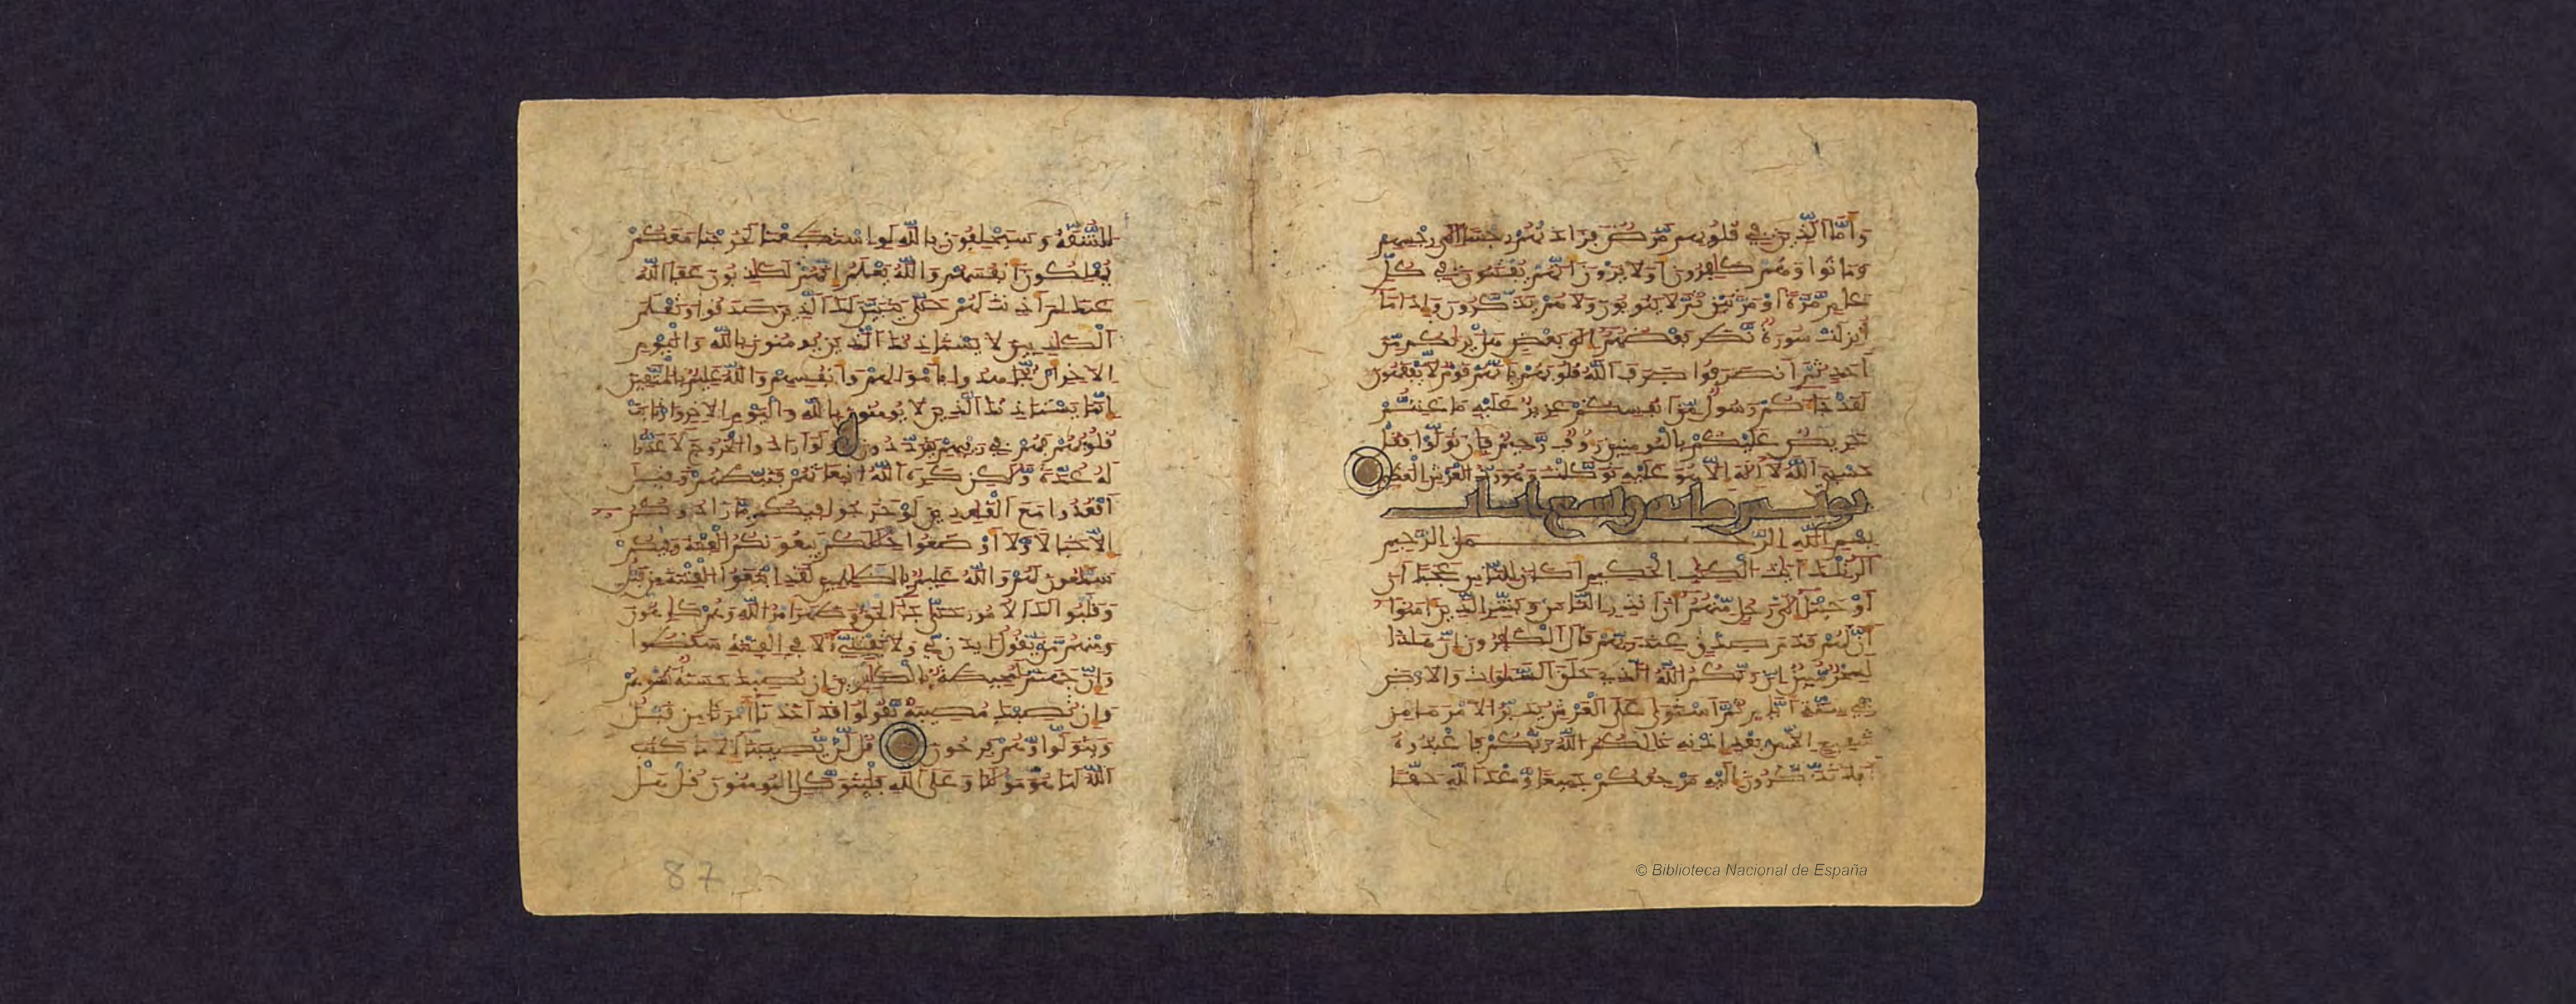 وأما الذين في قلوبهم مرض فزادتهم رجسا إلى رجسهم
وماتوا وهم كافرون أولا يرون أنهم يفتنون في كل
عام مرة أو مرتين ثم لا يتوبون ولا هم يذكرون وإذا ما
أنزلت سورة نظر بعضهم إلى بعض هل يريكم من
أحد ثم انصرفوا صرف الله قلوبهم بأنهم قوم لا يفقهون
لقد جاكم رسول من أنفسكم عزيز عليه ما عنتم
حريص عليكم بالمومنين روف رحيم فإن تولوا فقل
حسبي الله لا إله إلا هو عليه توكلت وهو رب العرش العظيم
يونس ماية وتسع ايات
بسم الله الرحمن الرحيم
الر تلك ءايت الكتب الحكيم أكان للناس عجبا أن
أوحينا إلى رجل منهم أن أنذر الناس وبشر الذين ءامنوا
أن لهم قدم صدق عند ربهم قال الكفرون إن هذا
لسحر مبين إن ربكم الله الذي خلق السموات والارض
في ستة أيام ثم استوى على العرش يدبر الامر ما من
شفيع إلا من بعد إذنه ذلكم الله ربكم فاعبدوه
أفلا تذكرون إليه مرجعكم جميعا وعد الله حقا
الشقة وسيحلفون بالله لو استطعنا لخرجنا معكم
يهلكون أنفسهم والله يعلم إنهم لكذبون عفا الله
عنك لم أذنت لهم حتى يتبين لك الذين صدقوا وتعلم
الكذبين لا يستاذنك الذين يومنون بالله واليوم
الاخر أن يجاهدوا بأموالهم وأنفسهم والله عليم بالمتقين
إنما يستاذنك الذين لا يومنون بالله واليوم الاخر وارتابت
قلوبهم فهم في ريبهم يترددون ولو أرادوا الخروج لأعدوا
له عدة ولكن كره الله انبعاثهم فثبطهم وقيل
اقعدوا مع القعدين لو خرجوا فيكم ما زادوكم
إلا خبالا ولأوضعوا خللكم يبغونكم الفتنة وفيكم
سمعون لهم والله عليم بالظلمين لقد ابتغوا الفتنة من قبل
وقلبوا لك الامور حتى جا الحق وظهر أمر الله وهم كارهون
ومنهم من يقول ايذن لي ولا تفتني ألا في الفتنة سقطوا
وإن جهنم لمحيطة بالكفرين إن تصبك حسنة تسوهم
وإن تصبك مصيبة يقولوا قد أخذنا أمرنا من قبل
ويتولوا وهم فرحون قل لن يصيبنا إلا ما كتب
الله لنا هو مولنا وعلى الله فليتوكل المومنون قل هل
87
© Biblioteca Nacional de España